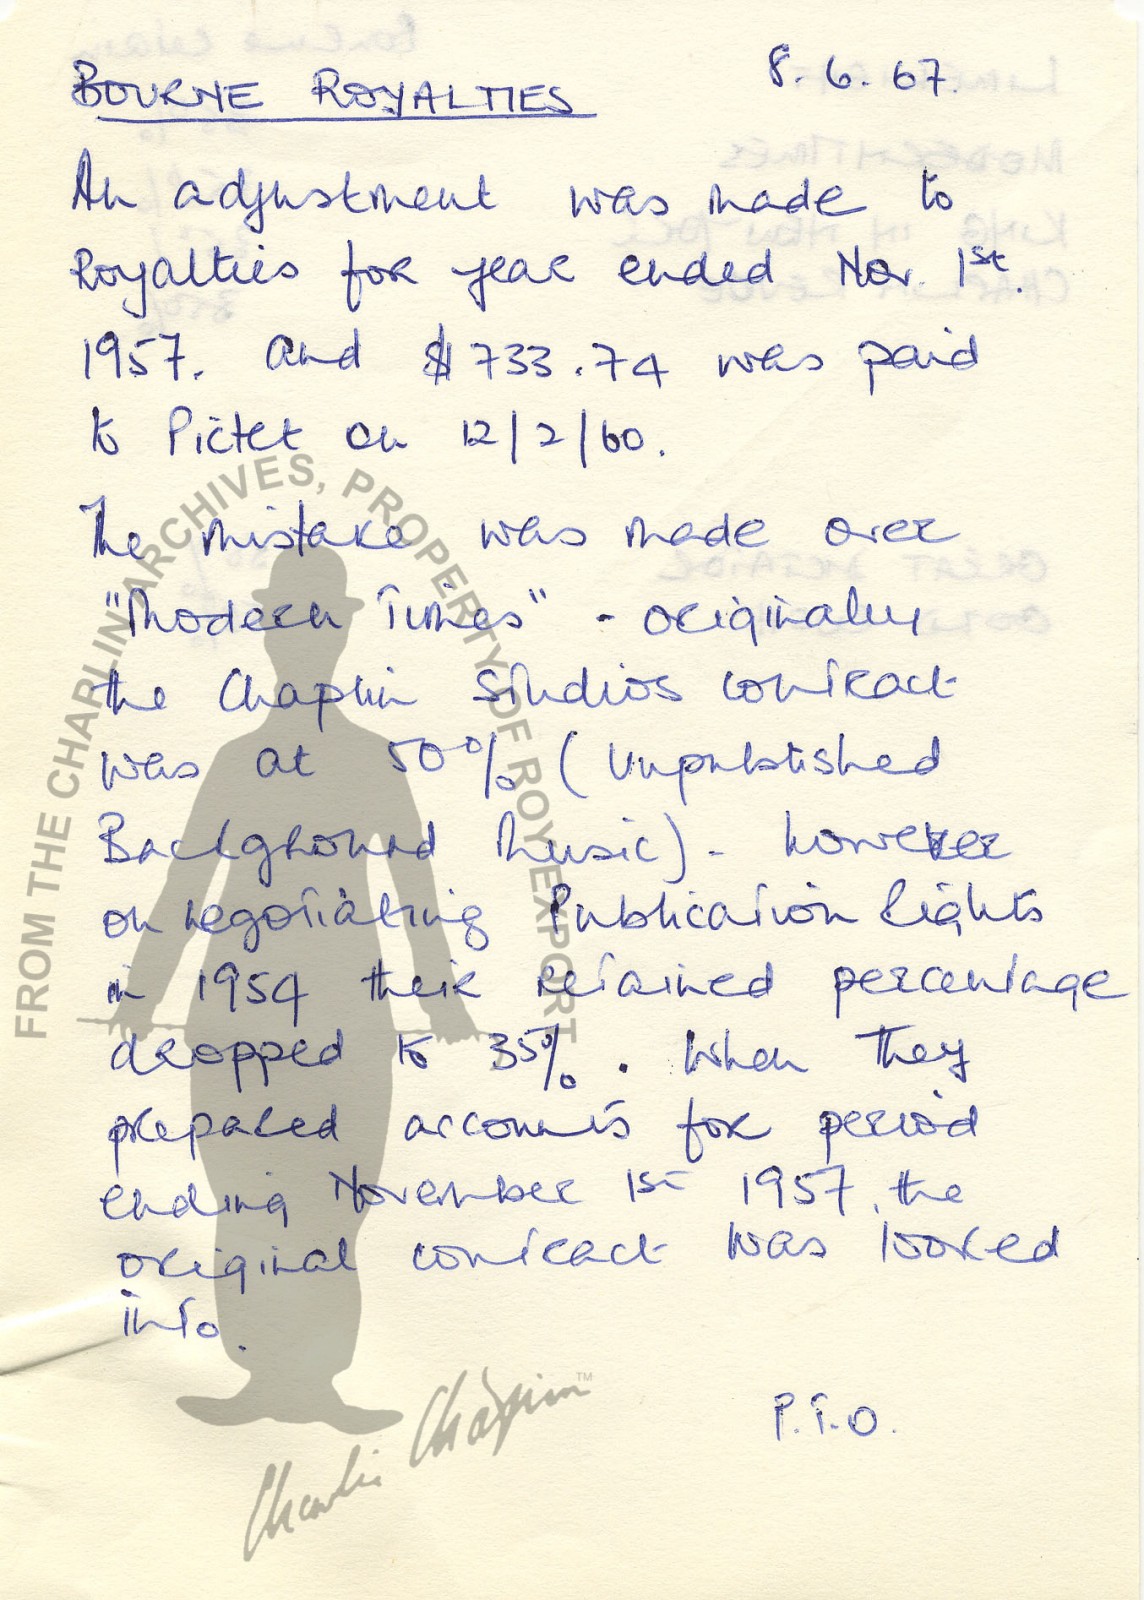 BOURNE ROYALTIES 8.6.67.
An adjustment was made to
Royalties for year ended Nov. 1st.
1957. and $733.74 was paid
to Pictet on 12/2/60.
The mistake was made over
"Modern Times" - originally
the Chaplin Studios contract
was at 50% (Unpublished
Background Music) - however
on negotiating Publication Rights
in 1954 their retained percentage
dropped to 35%. When they
prepared accounts for period
ending November 1st 1957, the
original contract was looked
into.
P.T.O.
FROM THE CHAPLIN ARCHIVES, PROPERTY OF ROY EXPORT
Charlie Chaplin™